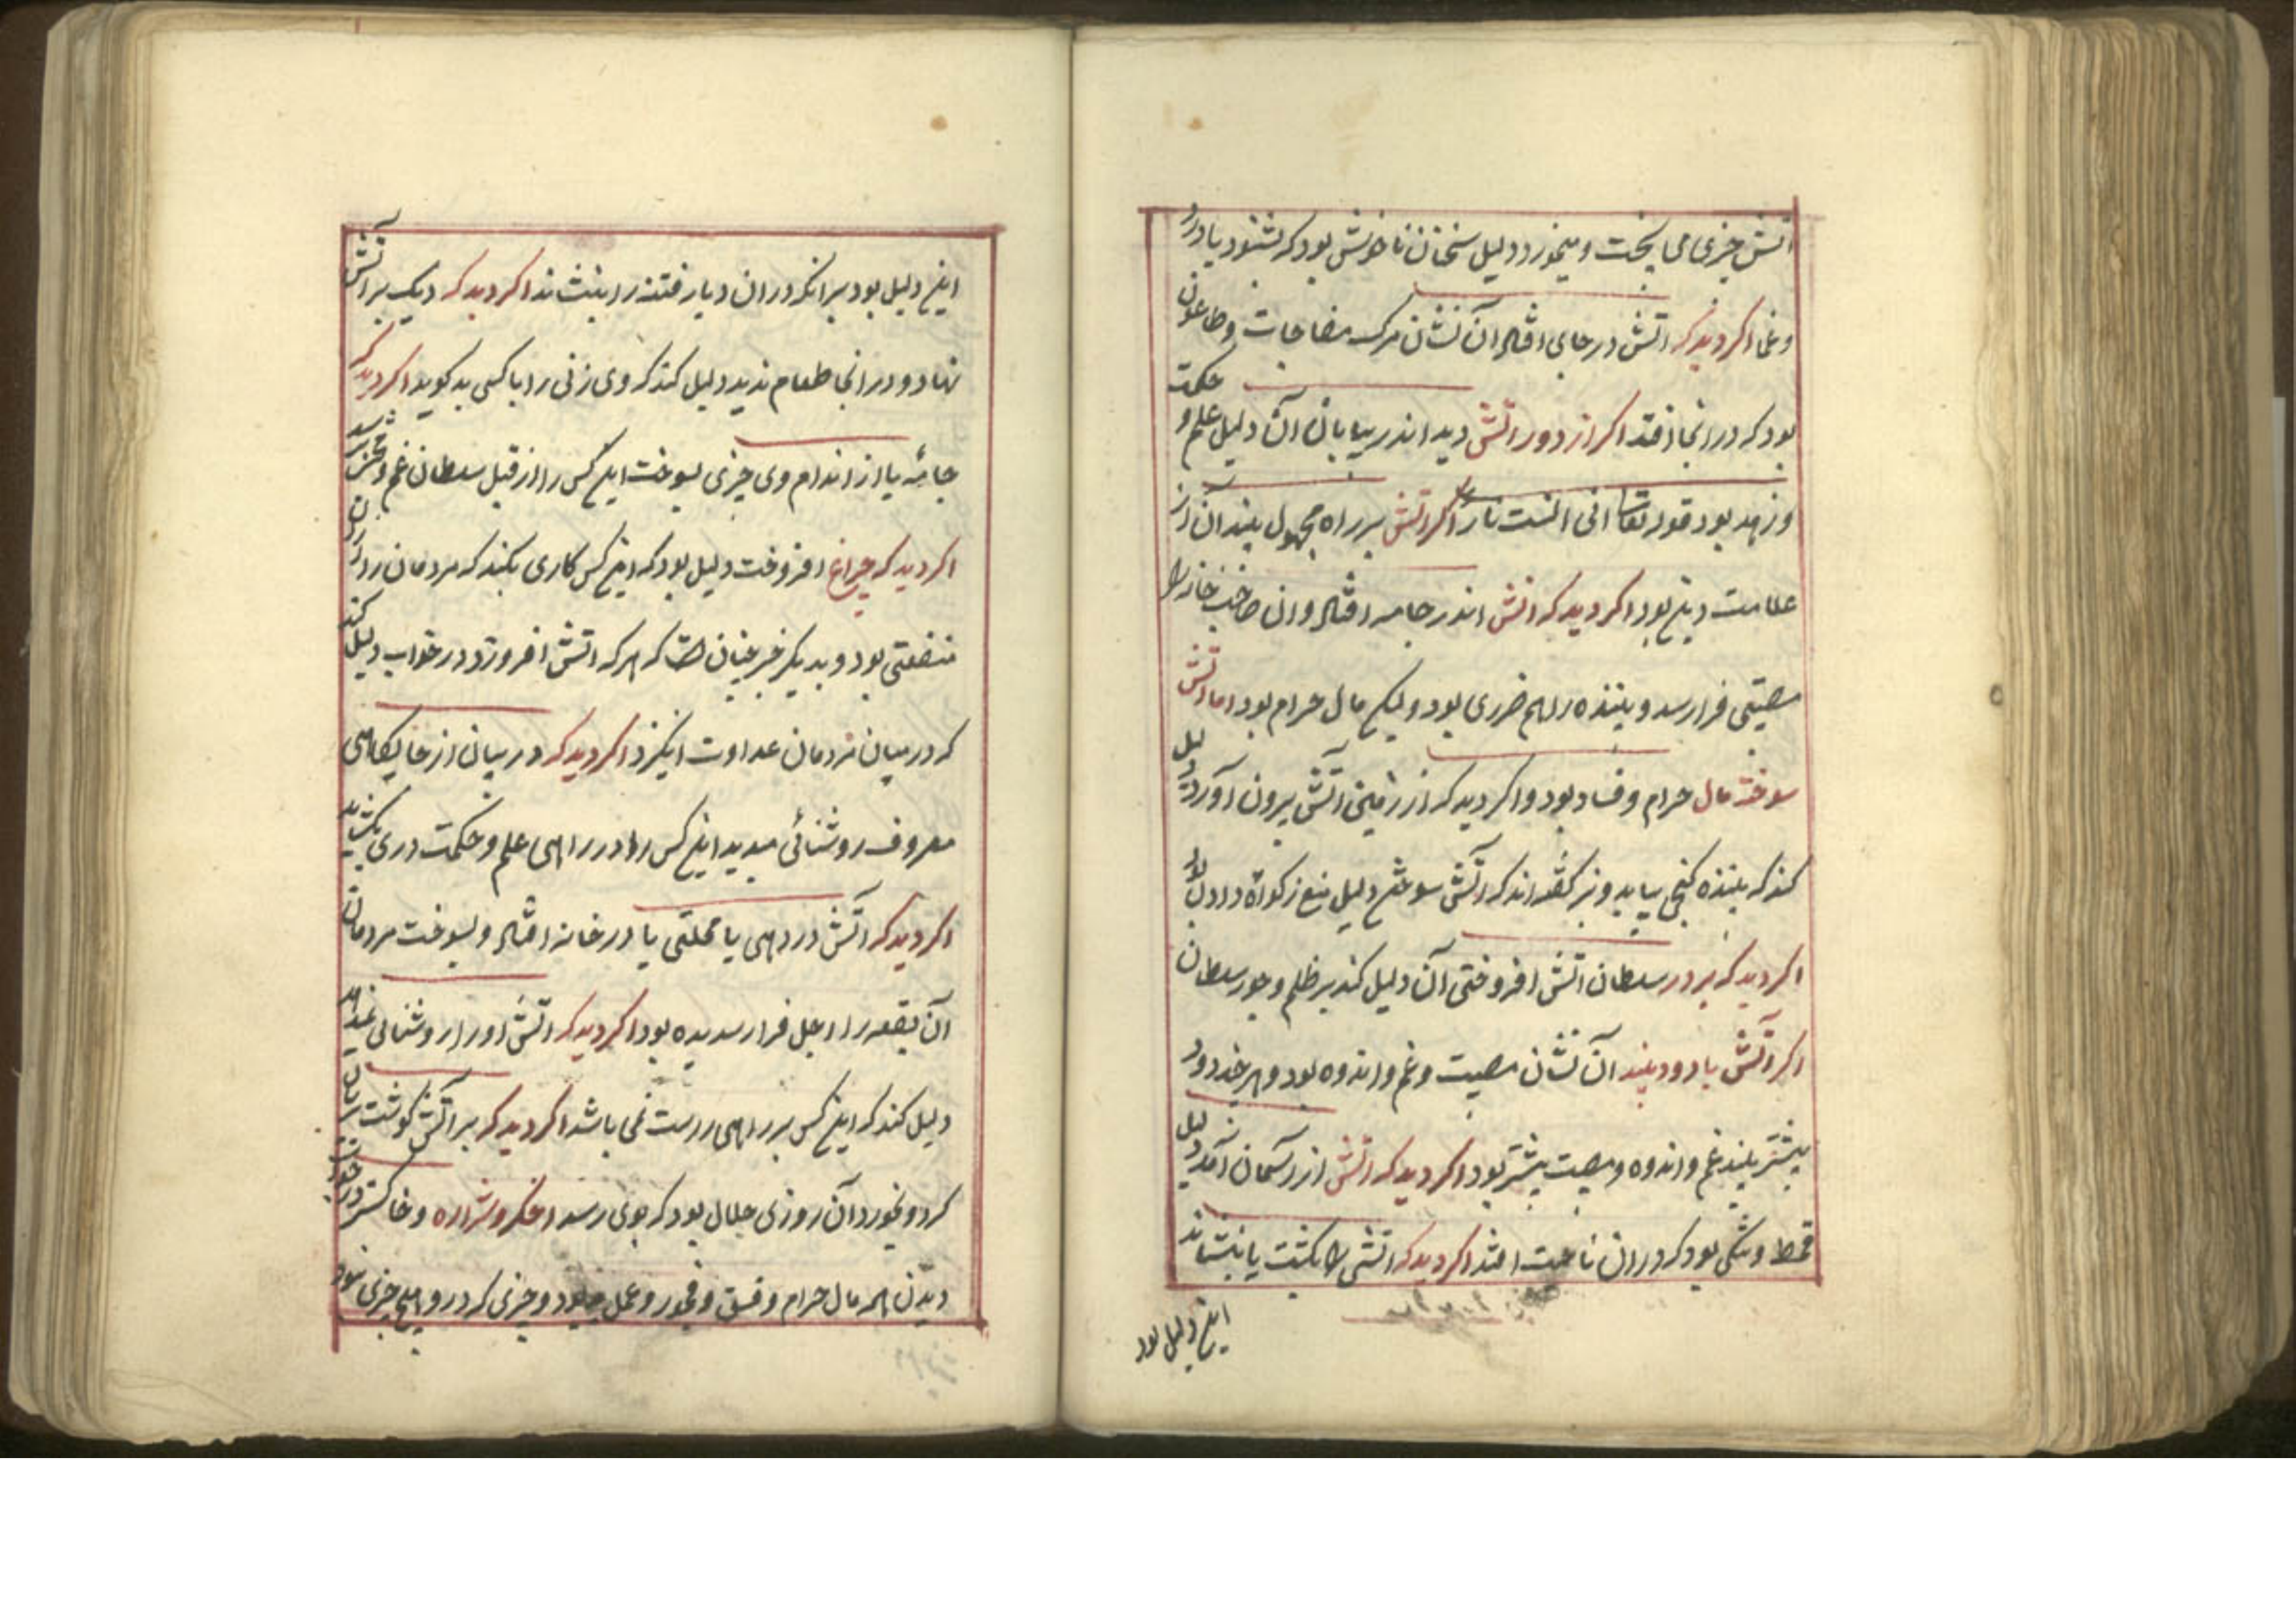 اتش چیزی می پخت و میخورد دلیل سخنان ناخوش بود که بشنود یا درد
و غم اکر دید که اتش در جای افتاد آن نشان مرک مفاجات و طاعون
بود که در انجا افتد اکر از دور اتش دید اندر بیابان آن دلیل علم و حکمت
و زهد بود قوله تعا انی انست نارا اکر اتش بر راه مجهول بیند آن از
علامت دین بود اکر دید که اتش اندر جامه افتاد وان صاحب خانه را
مصیبتی فرا رسد و بیننده را هم ضرری بود ولیکن مال حرام بود اما اتش
سوخته مال حرام و فساد بود و اکر دید که از زمین آتش بیرون آورد دلیل
کند که بیننده کنجی بیابد و نیز کفته اند که آتش سوختن دلیل منع زکواة دادن بود
اکر دید که بر در سلطان اتش افروختی آن دلیل کند بر ظلم و جور سلطان
اکر آتش با دود بیند آن نشان مصیبت و غم و اندوه بود و هر چند دود
بیشتر بیند غم و اندوه و مصیبت بیشتر بود اکر دید که اتش از آسمان آمد دلیل
قحط و تنکی بود که در ان ناحیت افتد اکر دید که اتش را بکشت یا بنشاند
این دلیل بود
این دلیل بود بر انکه در ان دیار فتنه را بنشاند اکر دید که دیک بر آتش
نهاد و در انجا طعام ندید دلیل کند که وی زنی را با کسی بد کوید اکر دید که
جامٔه یا از اندام وی چیزی بسوخت این کس را از قبل سلطان غم و حزن رسد
اکر دید که چراغ افروخت دلیل بود که این کس کاری بکند که مردمان را در ان
منفعتی بود و بدیکر خبر چنان است که هر که اتش افروزد در خواب دلیل کند
که در میان مردمان عداوت انکیزد اکر دید که در میان از جایکاهی
معروف روشنائی میدید این کس را در راهی علم و حکمت دری بکشاید
اکر دید که آتش در دهی یا محلتی یا در خانه افتاد و بسوخت مردمان
آن بقعه را اجل فرا رسیده بود اکر دید که اتش او را روشنائی نمیداد
دلیل کند که این کس بر راهی راست نمی باشد اکر دید که بر آتش کوشت بریان
کرد و بخورد آن روزی حلال بود که بوی رسد اخکر و شراره و خاکستر در خواب
دیدن همه مال حرام و فسق و فجور و عمل بود و چیزی که در و هیچ چیزی نبود